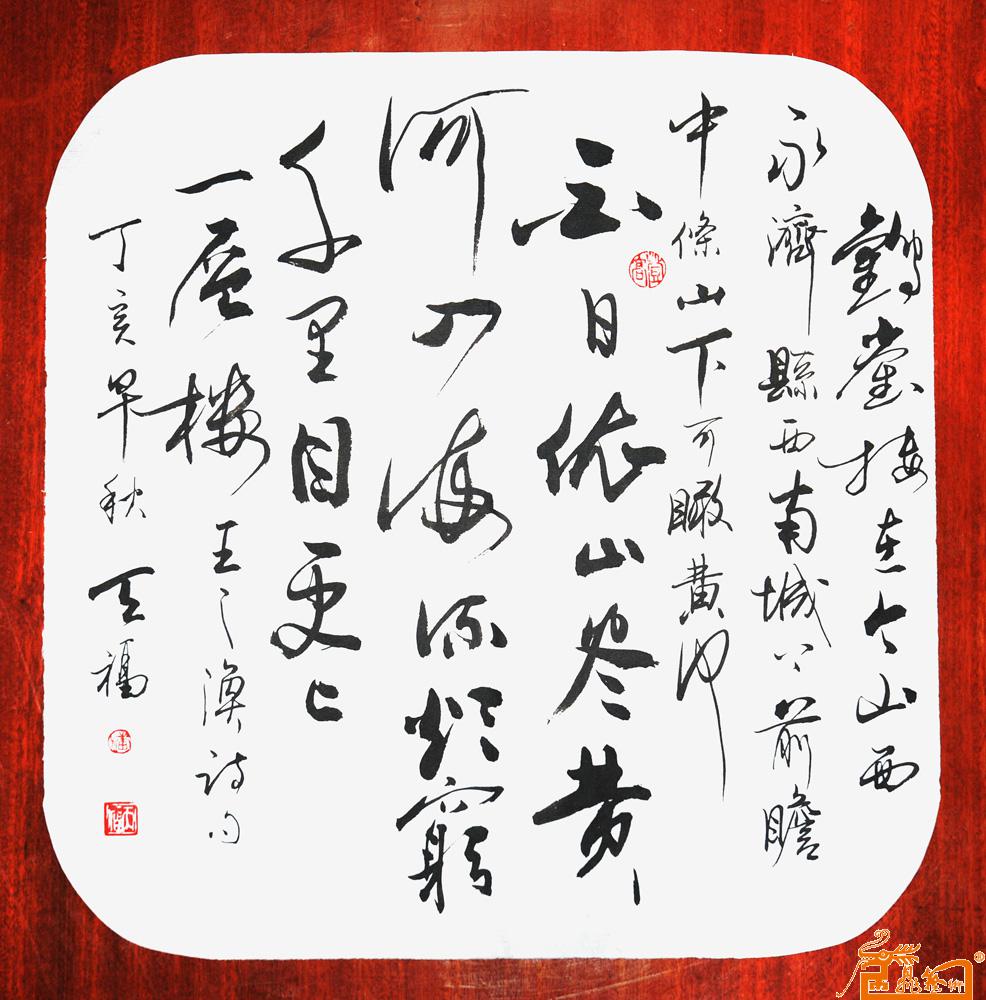 鸛雀楼在今山西
永濟縣西南城上前瞻
中條山下可瞰黄河
白日依山尽黄
河入海流欲窮
千里目更上
一层楼
王之涣诗句
丁亥早秋 天福